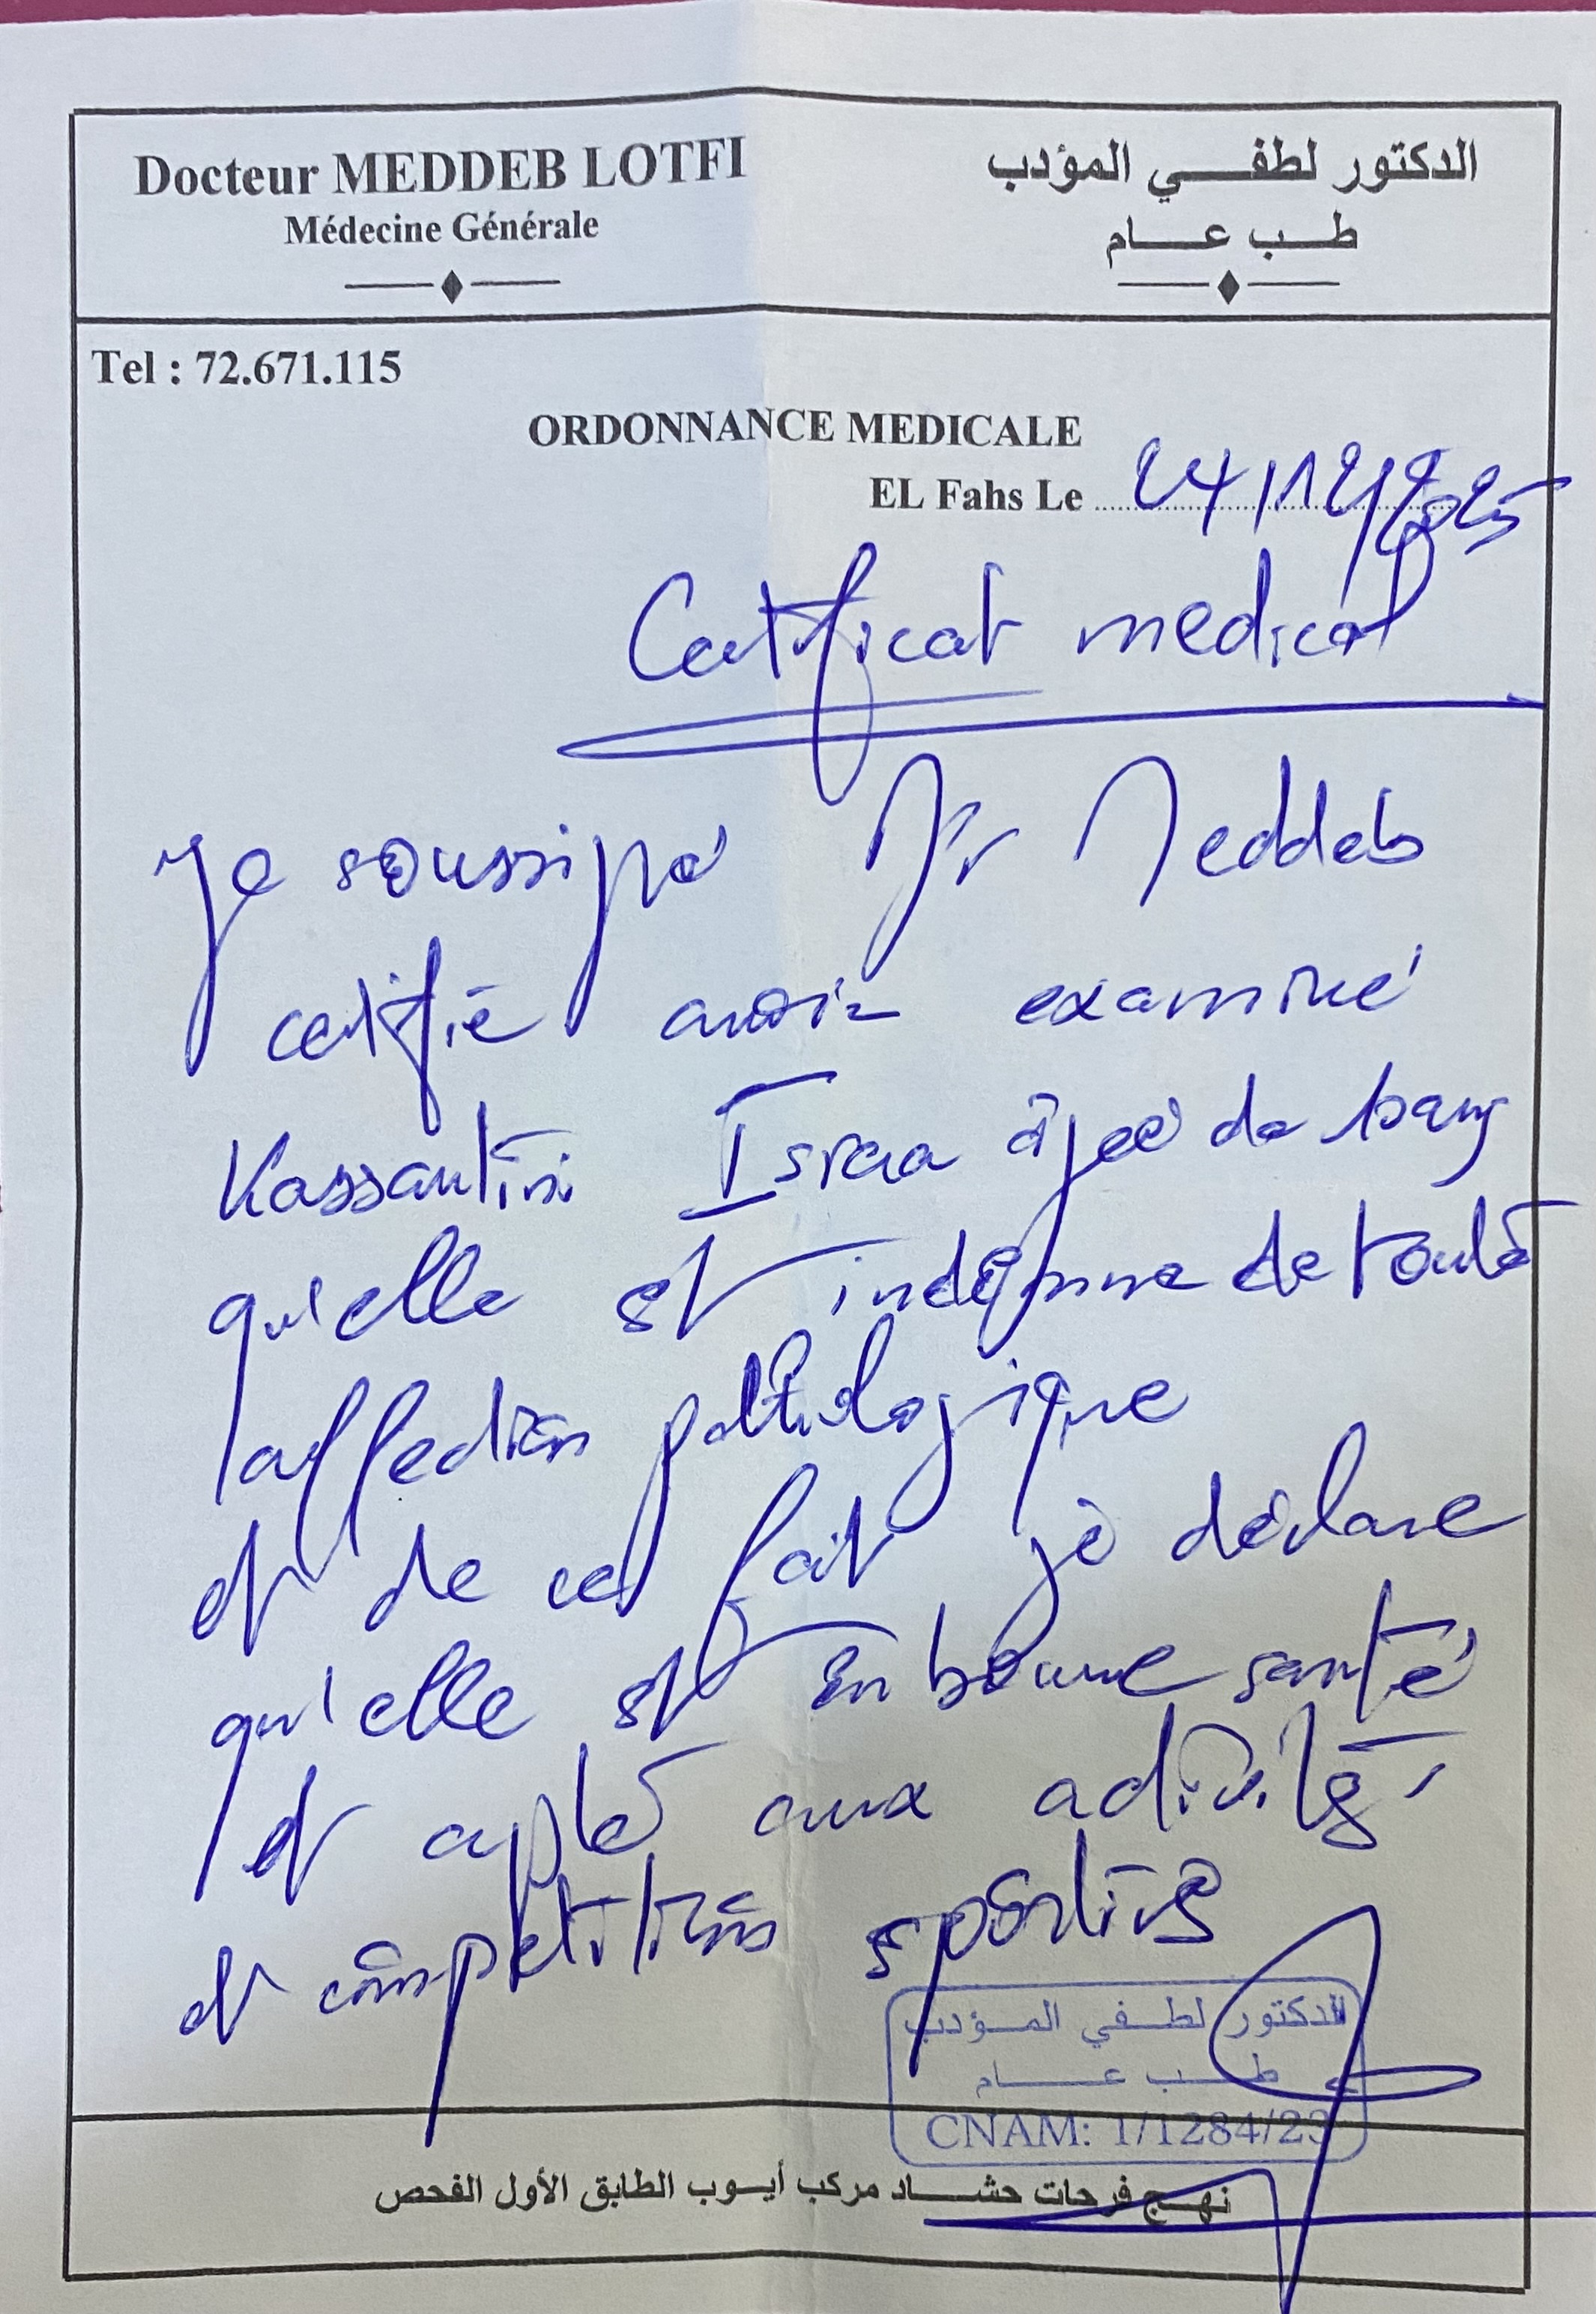 Docteur MEDDEB LOTFI
Médecine Générale
الدكتور لطفي المؤدب
طب عام
Tel : 72.671.115
ORDONNANCE MEDICALE
EL Fahs Le 24/12/2025
Certificat medical
Je soussigné Dr Meddeb
certifie avoir examiné
Kassantini Israa âgée de
qu'elle est indemne de toute
affection pathologique
et de ce fait je déclare
qu'elle est en bonne santé
et apte aux activités
et compétitions sportives
الدكتور لطفي المؤدب
طب عام
CNAM: 1/1284/23
نهج فرحات حشاد مركب أيوب الطابق الأول الفحص